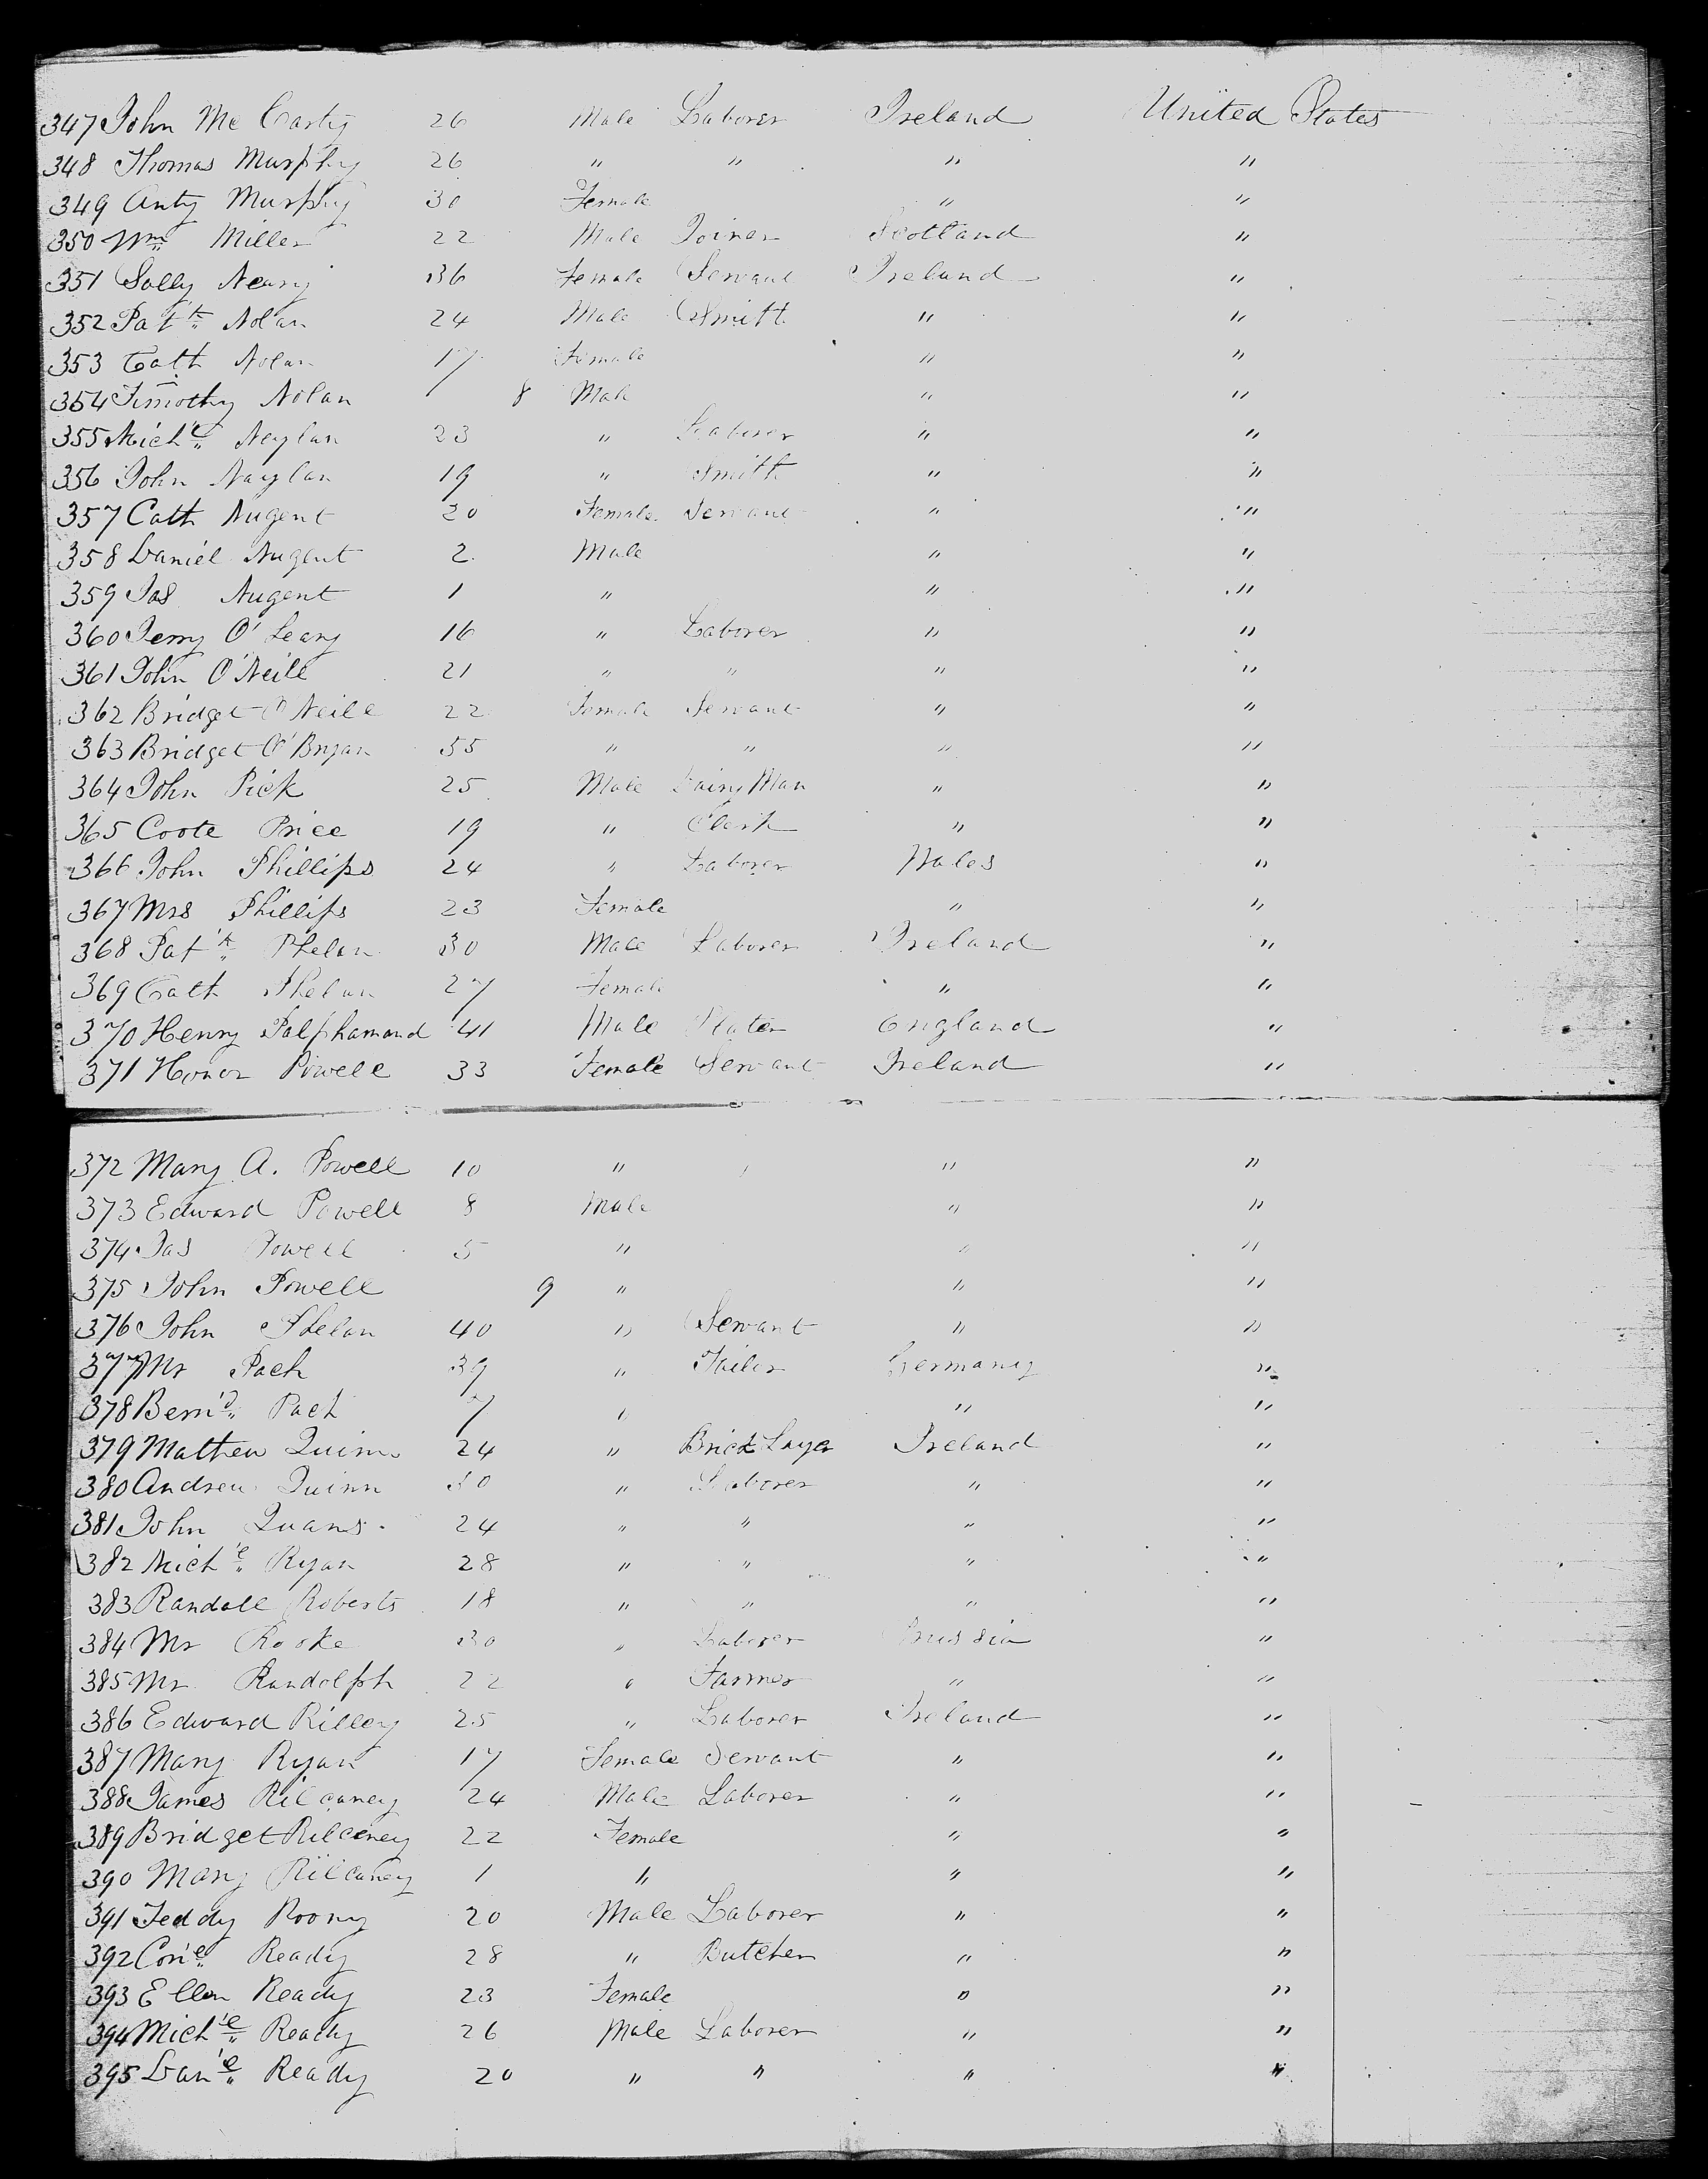 347 John Mc Carty 26 Male Laborer Ireland United States
348 Thomas Murphy 26 " " " "
349 Anty Murphy 30 Female " "
350 Wm Miller 22 Male Joiner Scotland "
351 Sally Neary 36 Female Servant Ireland "
352 Pat'k Nolan 24 Male Smith " "
353 Cath Nolan 17 Female " "
354 Timothy Nolan 8 Male " "
355 Mich'l Neylan 23 " Laborer " "
356 John Naylan 19 " Smith " "
357 Cath Nugent 20 Female Servant " "
358 Daniel Nugent 2 Male " "
359 Jas Nugent 1 " " "
360 Jerry O'Leary 16 " Laborer " "
361 John O'Neill 21 " " " "
362 Bridget O'Neill 22 Female Servant " "
363 Bridget O'Bryan 55 " " " "
364 John Pick 25 Male Dairy Man " "
365 Coote Price 19 " Clerk " "
366 John Phillips 24 " Laborer Wales "
367 Mrs Phillips 23 Female " "
368 Pat'k Phelan 30 Male Laborer Ireland "
369 Cath Phelan 27 Female " "
370 Henry Palphamand 41 Male England "
371 Honor Powell 33 Female Servant Ireland "
372 Mary A. Powell 10 " " "
373 Edward Powell 8 Male " "
374 Jas Powell 5 " " "
375 John Powell 9 " " "
376 John Phelan 40 " Servant " "
377 Mr Pach 39 " Tailor Germany "
378 Bern'd Pach 7 " " "
379 Mathew Quinn 24 " Brick Layer Ireland "
380 Andrew Quinn 30 " Laborer " "
381 John Quans 24 " " " "
382 Mich'l Ryan 28 " " " "
383 Randall Roberts 18 " " " "
384 Mr Rooke 30 " Laborer Prussia "
385 Mr Randolph 22 " Farmer " "
386 Edward Rilley 25 " Laborer Ireland "
387 Mary Ryan 17 Female Servant " "
388 James Rilcaney 24 Male Laborer " "
389 Bridget Rilceney 22 Female " "
390 Mary Rilcaney 1 " " "
391 Teddy Roony 20 Male Laborer " "
392 Corn'l Ready 28 " Butcher " "
393 Ellen Ready 23 Female " "
394 Mich'l Ready 26 Male Laborer " "
395 Dan'l Ready 20 " " " "